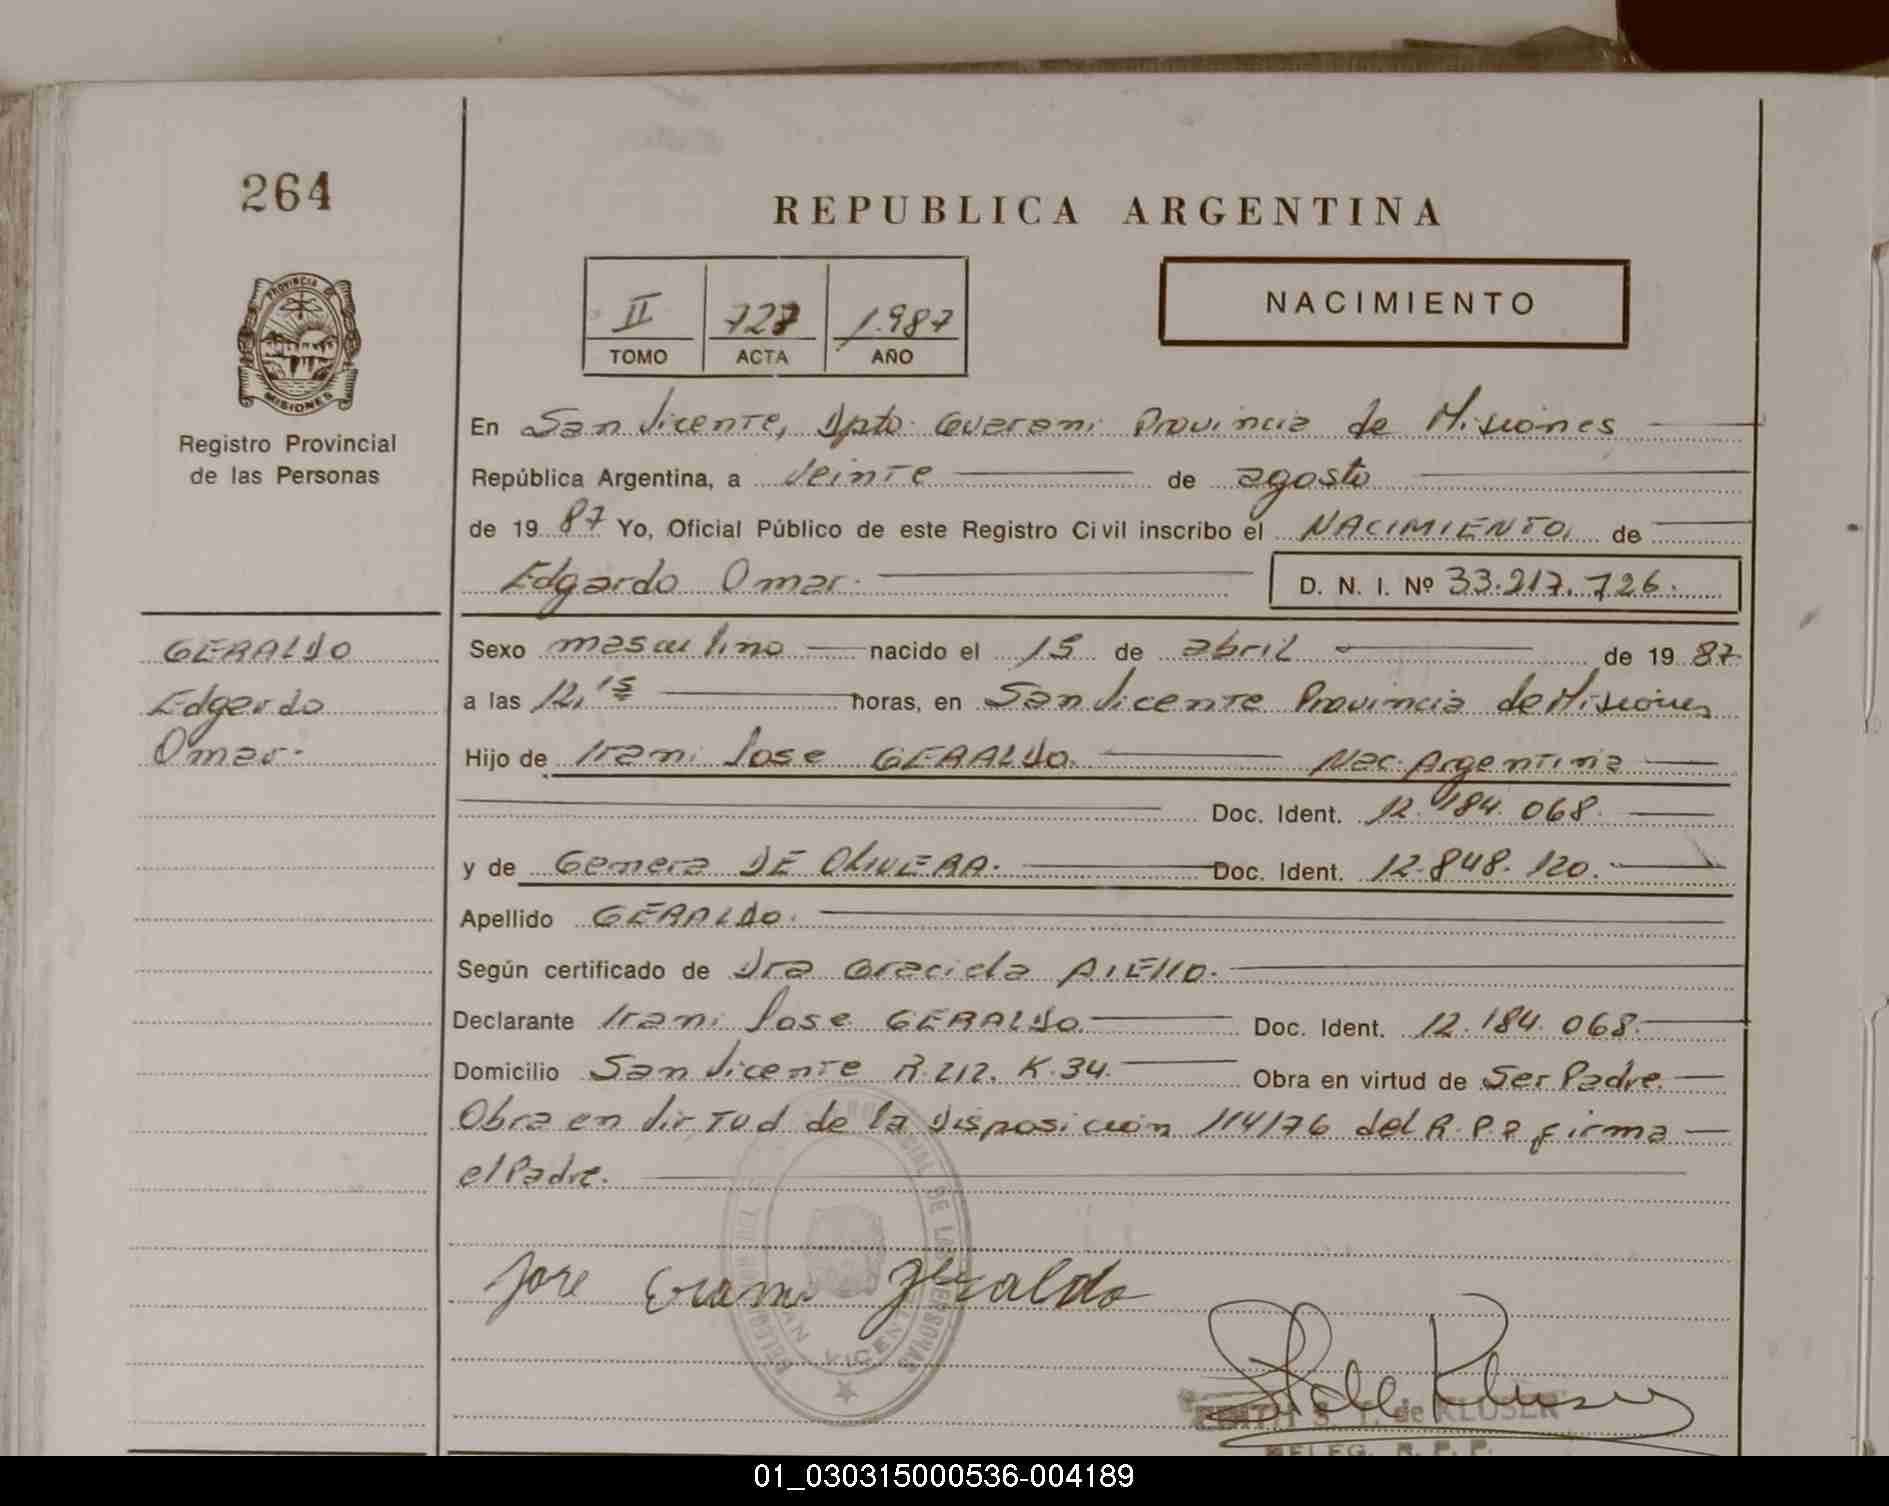 264
REPUBLICA ARGENTINA
II 727 1.987
TOMO ACTA AÑO
NACIMIENTO
PROVINCIA DE
MISIONES
Registro Provincial
de las Personas
En San Vicente, Dpto. Guarani Provincia de Misiones
República Argentina, a Veinte de agosto
de 1987 Yo, Oficial Público de este Registro Civil inscribo el NACIMIENTO, de
Edgardo Omar. D. N. I. Nº 33.217.726.
GERALDO
Edgardo
Omar.
Sexo masculino nacido el 15 de abril de 1987.
a las 12,15 horas, en San Vicente Provincia de Misiones
Hijo de Irani Jose GERALDO. Nac. Argentina
Doc. Ident. 12.184.068.
y de Gemera DE OLIVERA. Doc. Ident. 12.848.120.
Apellido GERALDO.
Según certificado de Dra Graciela AIELLO.
Declarante Irani Jose GERALDO. Doc. Ident. 12.184.068.
Domicilio San Vicente R.212. K.34. Obra en virtud de Ser Padre.
Obra en Virtud de la Disposición 114/76 del R.P.P firma
el Padre.
Jose Erami Geraldo
SAN VICENTE
EDITH S. T. de KLUSER
DELEG. R. P. P.
01_030315000536-004189